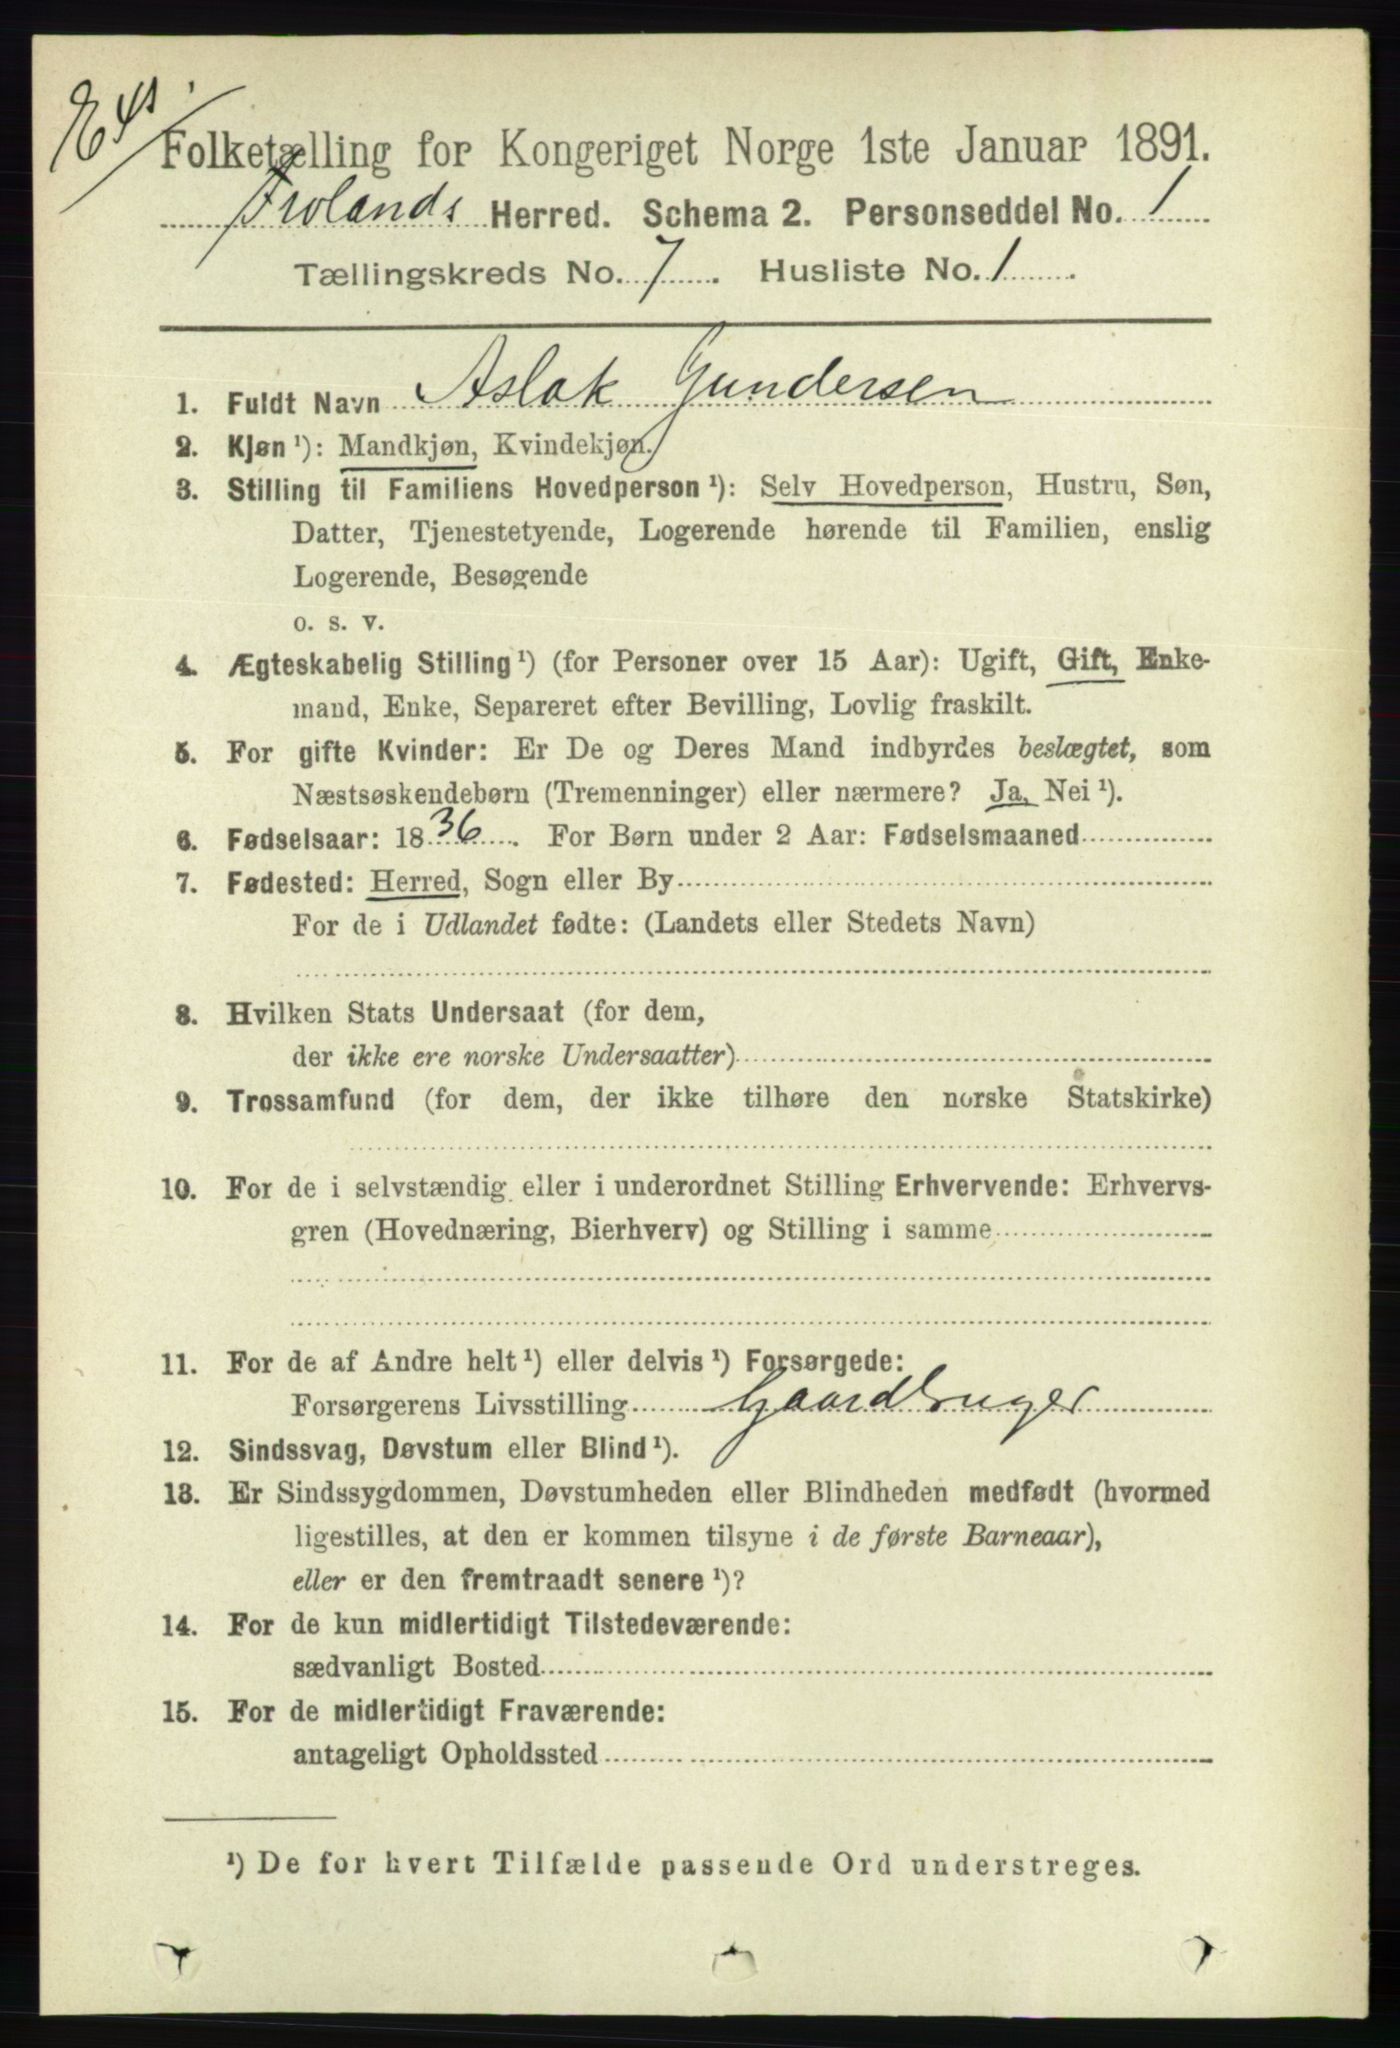 Folketælling for Kongeriget Norge 1ste Januar 1891.
Frolands Herred. Schema 2. Personseddel No. 1
Tællingskreds No. 7. Husliste No. 1.
1. Fuldt Navn Aslak Gundersen
2. Kjøn ¹): Mandkjøn, Kvindekjøn.
3. Stilling til Familiens Hovedperson ¹): Selv Hovedperson, Hustru, Søn,
Datter, Tjenestetyende, Logerende hørende til Familien, enslig
Logerende, Besøgende
o. s. v.
4. Ægteskabelig Stilling ¹) (for Personer over 15 Aar): Ugift, Gift, Enke-
mand, Enke, Separeret efter Bevilling, Lovlig fraskilt.
5. For gifte Kvinder: Er De og Deres Mand indbyrdes beslægtet, som
Næstsøskendebørn (Tremenninger) eller nærmere? Ja, Nei ¹).
6. Fødselsaar: 1836. For Børn under 2 Aar: Fødselsmaaned
7. Fødested: Herred, Sogn eller By
For de i Udlandet fødte: (Landets eller Stedets Navn)
8. Hvilken Stats Undersaat (for dem,
der ikke ere norske Undersaatter)
9. Trossamfund (for dem, der ikke tilhøre den norske Statskirke)
10. For de i selvstændig eller i underordnet Stilling Erhvervende: Erhvervs-
gren (Hovednæring, Bierhverv) og Stilling i samme
11. For de af Andre helt ¹) eller delvis ¹) Forsørgede:
Forsørgerens Livsstilling Gaardbruger
12. Sindssvag, Døvstum eller Blind ¹).
13. Er Sindssygdommen, Døvstumheden eller Blindheden medfødt (hvormed
ligestilles, at den er kommen tilsyne i de første Barneaar),
eller er den fremtraadt senere ¹)?
14. For de kun midlertidigt Tilstedeværende:
sædvanligt Bosted
15. For de midlertidigt Fraværende:
antageligt Opholdssted
¹) De for hvert Tilfælde passende Ord understreges.